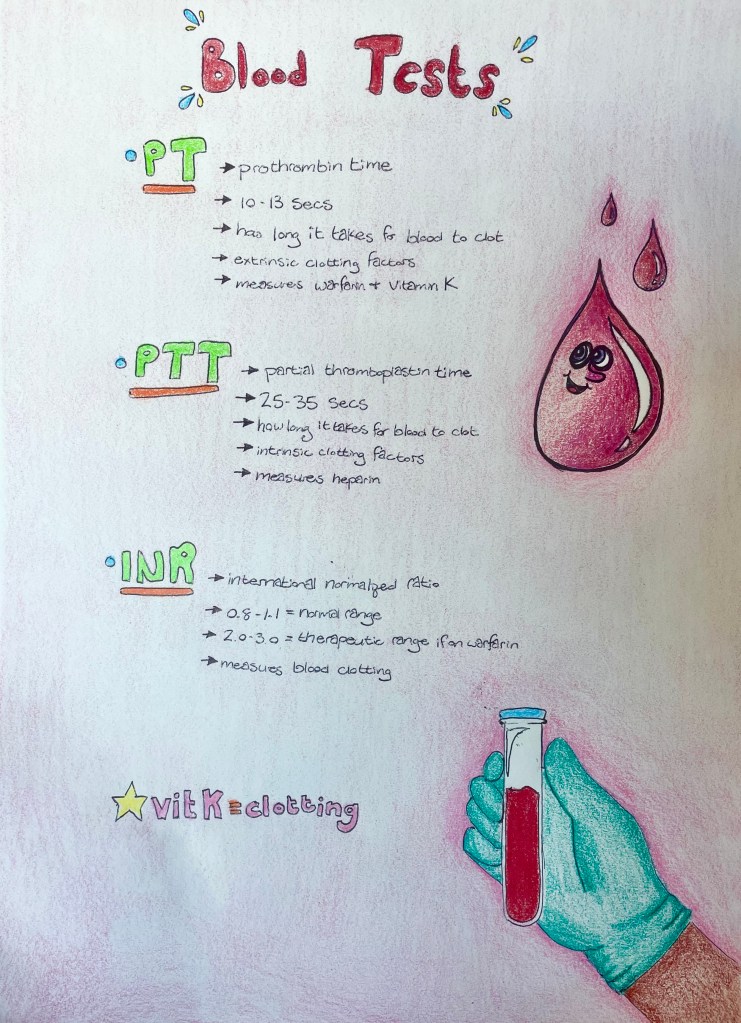 Blood Tests
• PT → prothrombin time
→ 10-13 secs
→ how long it takes for blood to clot
→ extrinsic clotting factors
→ measures warfarin + vitamin K
• PTT → partial thromboplastin time
→ 25-35 secs
→ how long it takes for blood to clot
→ intrinsic clotting factors
→ measures heparin
• INR → international normalized ratio
→ 0.8-1.1 = normal range
→ 2.0-3.0 = therapeutic range if on warfarin
→ measures blood clotting
☆ vit K = clotting